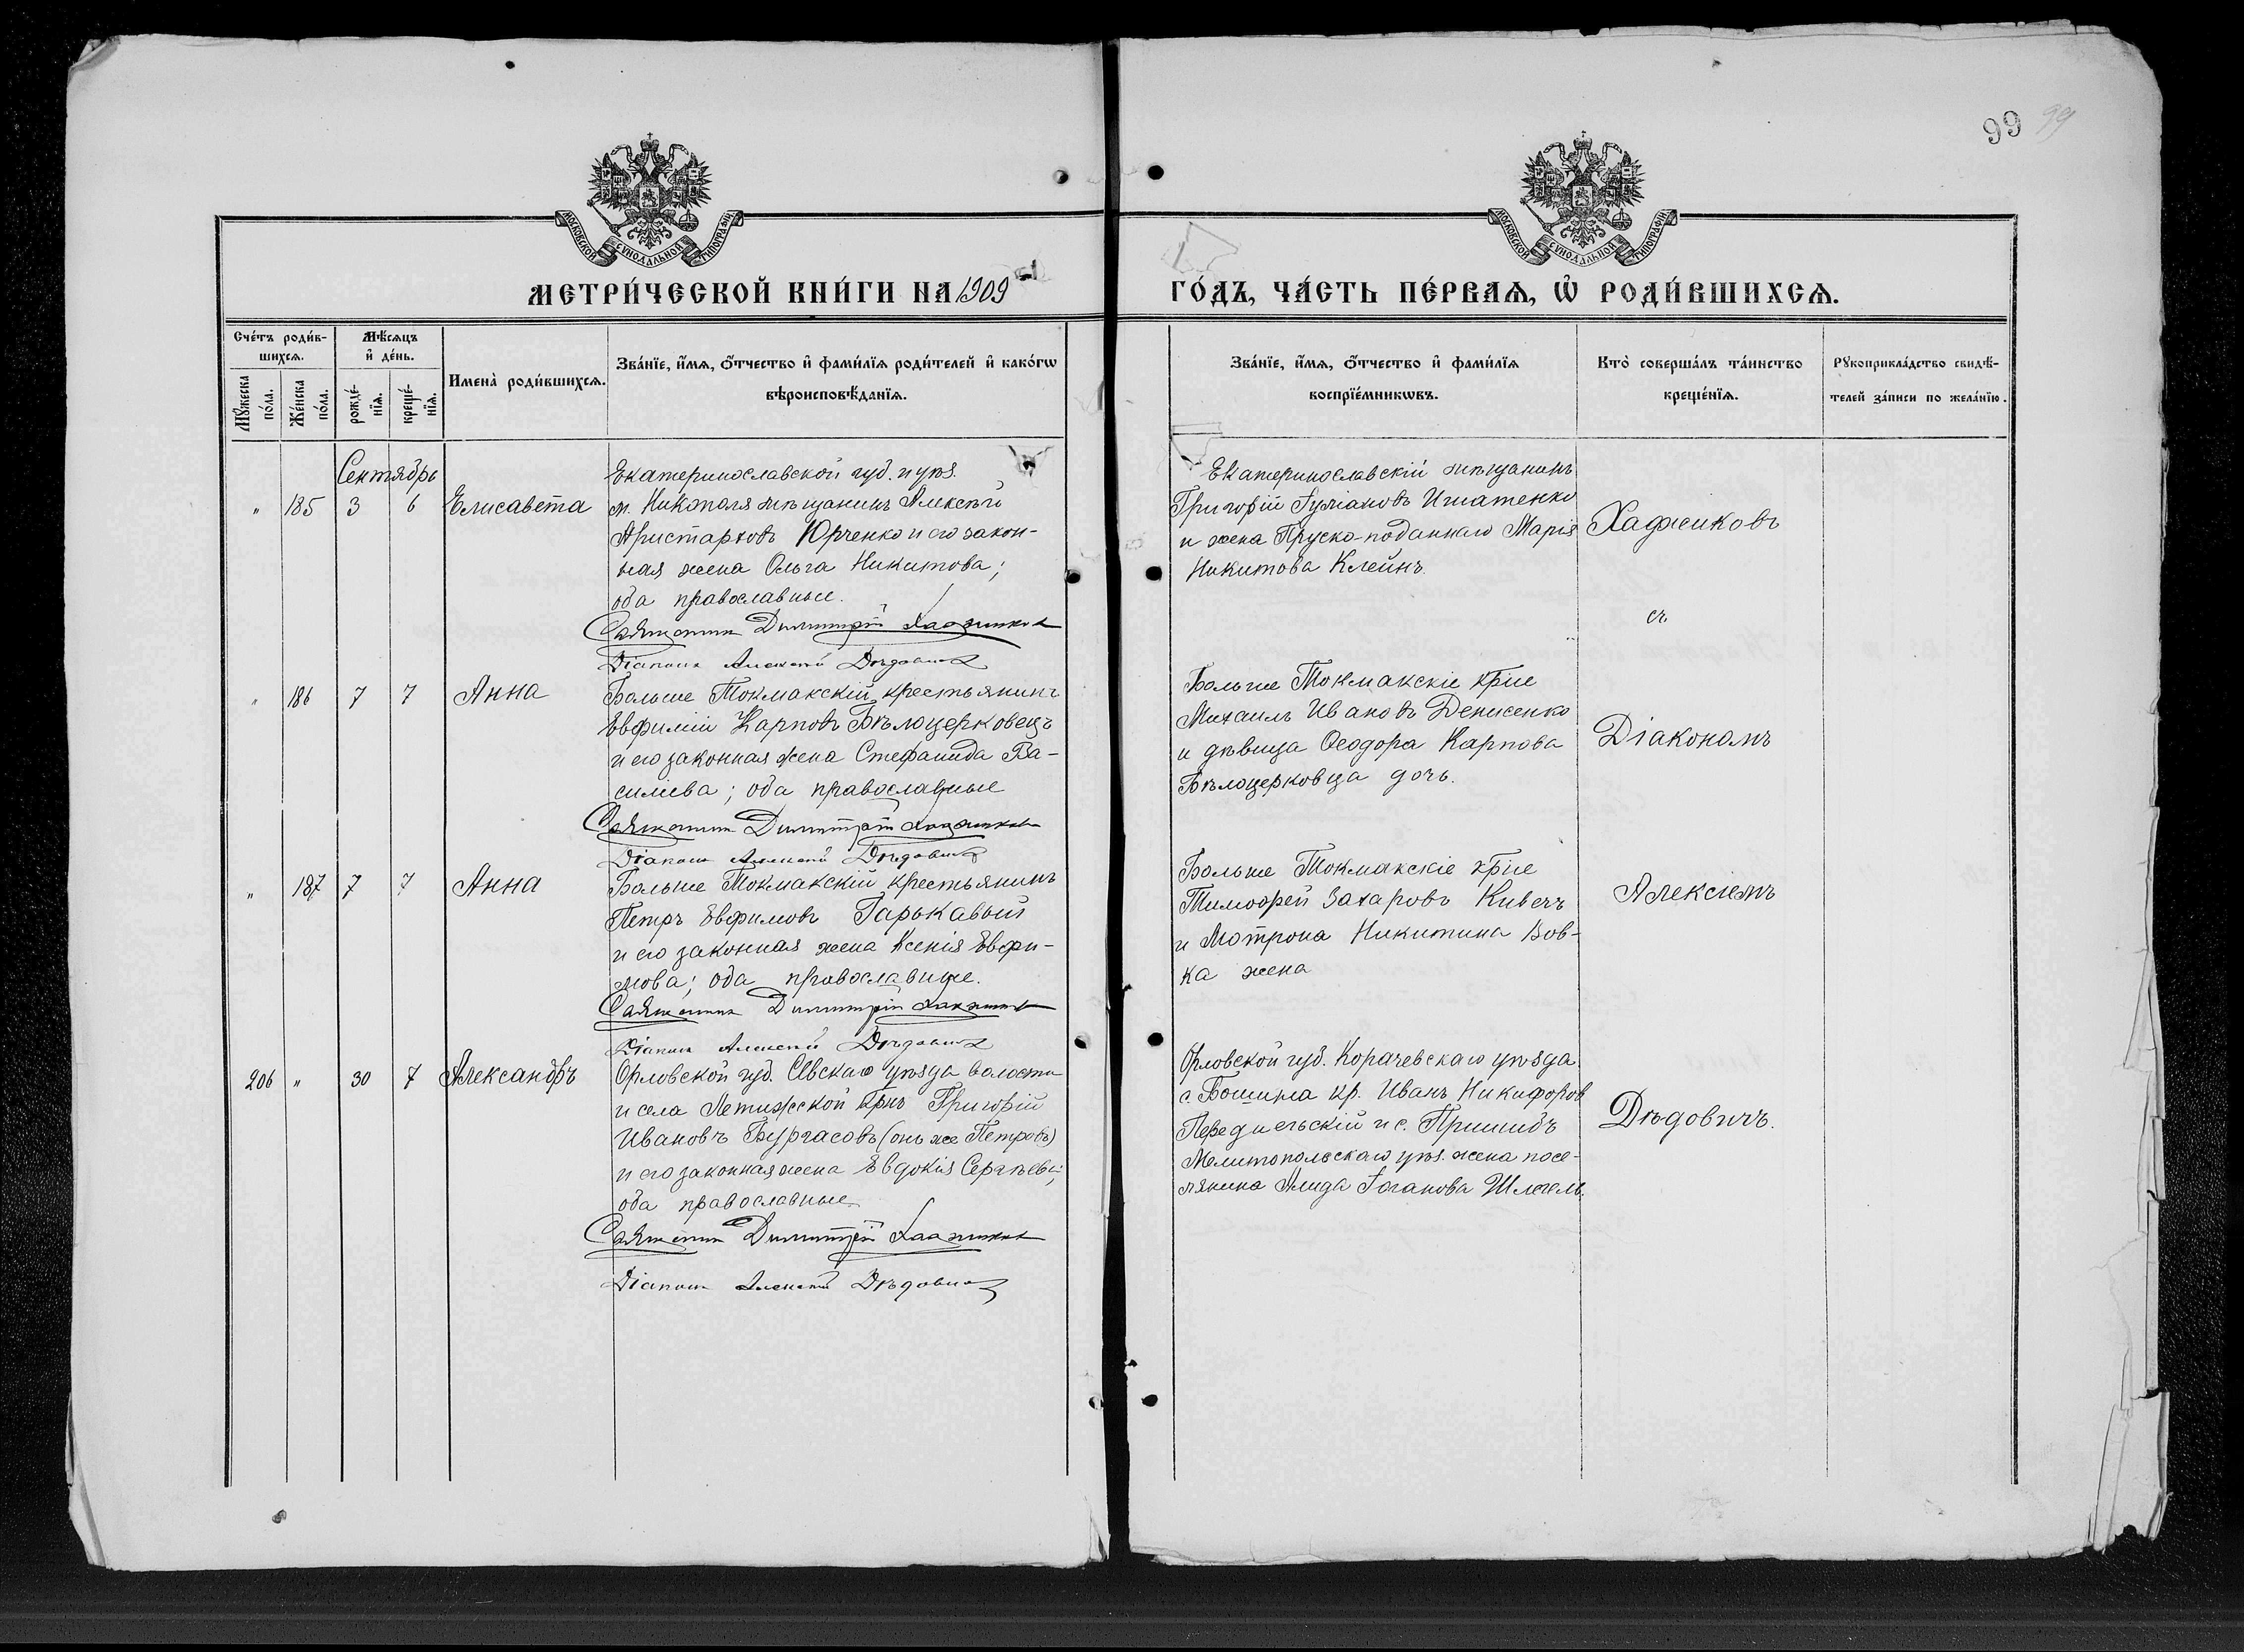 99 99
МОСКОВСКОЙ СУНОДАЛЬНОЙ ТИПОГРАФІИ
МОСКОВСКОЙ СУНОДАЛЬНОЙ ТИПОГРАФІИ
МЕТРИ́ЧЕСКОЙ КНИ́ГИ НА 1909
ГО́ДЪ, ЧА́СТЬ ПЕ́РВАѦ, Ѡ҆ РОДИ́ВШИХСѦ.
Сче́тъ роди́в-
шихсѧ.
Мꙋ́жеска по́ла.
Же́нска по́ла.
Мѣ́сѧцъ
и҆ де́нь.
рожде́-нїѧ.
креще́-нїѧ.
Имена̀ роди́вшихсѧ.
Зва́нїе, и҆́мѧ, ѻ҆́тчество и҆ фами́лїѧ роди́телей и҆ како́гѡ
вѣроисповѣ́данїѧ.
Зва́нїе, и҆́мѧ, ѻ҆́тчество и҆ фами́лїѧ
воспрїе́мникѡвъ.
Кто̀ соверша́лъ та́инство
креще́нїѧ.
Рꙋкоприкла́дство свидѣ́-
телей за́писи по жела́нїю.
Сентябрь
" 185 3 6 Елисавета
Екатеринославской губ. и уѣз.
м. Никополя мѣщанинъ Алексѣй
Аристарховъ Юрченко и его закон-
ная жена Ольга Никитова;
оба православные.
Священник Димитрій Хаджиков
Діаконъ Алексѣй Дѣдович
Екатеринославскій мѣщанинъ
Григорій Гуліановъ Игнатенко
и жена Пруско-поданнаго Марія
Никитова Клейнъ.
Хаджиковъ
съ
" 186 7 7 Анна
Больше Токмакскій крестьянинъ
Евфимій Карповъ Бѣлоцерковецъ
и его законная жена Стефанида Ва-
силіева; оба православные
Священник Димитрій Хаджиков
Діаконъ Алексѣй Дѣдович
Больше Токмакскіе кр̃не
Михаилъ Ивановъ Денисенко
и дѣвица Ѳеодора Карпова
Бѣлоцерковца дочь.
Діакономъ
" 187 7 7 Анна
Больше Токмакскій крестьянинъ
Петръ Евфимовъ Гарькавый
и его законная жена Ксенія Евфи-
мова; оба православные.
Священник Димитрій Хаджиков
Діаконъ Алексѣй Дѣдович
Больше Токмакскіе кр̃не
Тимоѳей Захаровъ Кивечъ
и Мотрона Никитина Вов-
ка жена
Алексіемъ
206 " 30 7 Александръ
Орловской губ. Сѣвскаго уѣзда волости
и села Летижской кр̃нъ Григорій
Ивановъ Бургасовъ (онъ же Петровъ)
и его законная жена Евдокія Сергѣева;
оба православные
Священник Димитрій Хаджиков
Діаконъ Алексѣй Дѣдович
Орловской губ. Корачевскаго уѣзда
с. Бошина кр. Иванъ Никифоров
и с. Пришибъ
Мелитопольскаго уѣз. жена посе-
лянина Алида Іоганова Шлегель.
Дѣдовичъ.